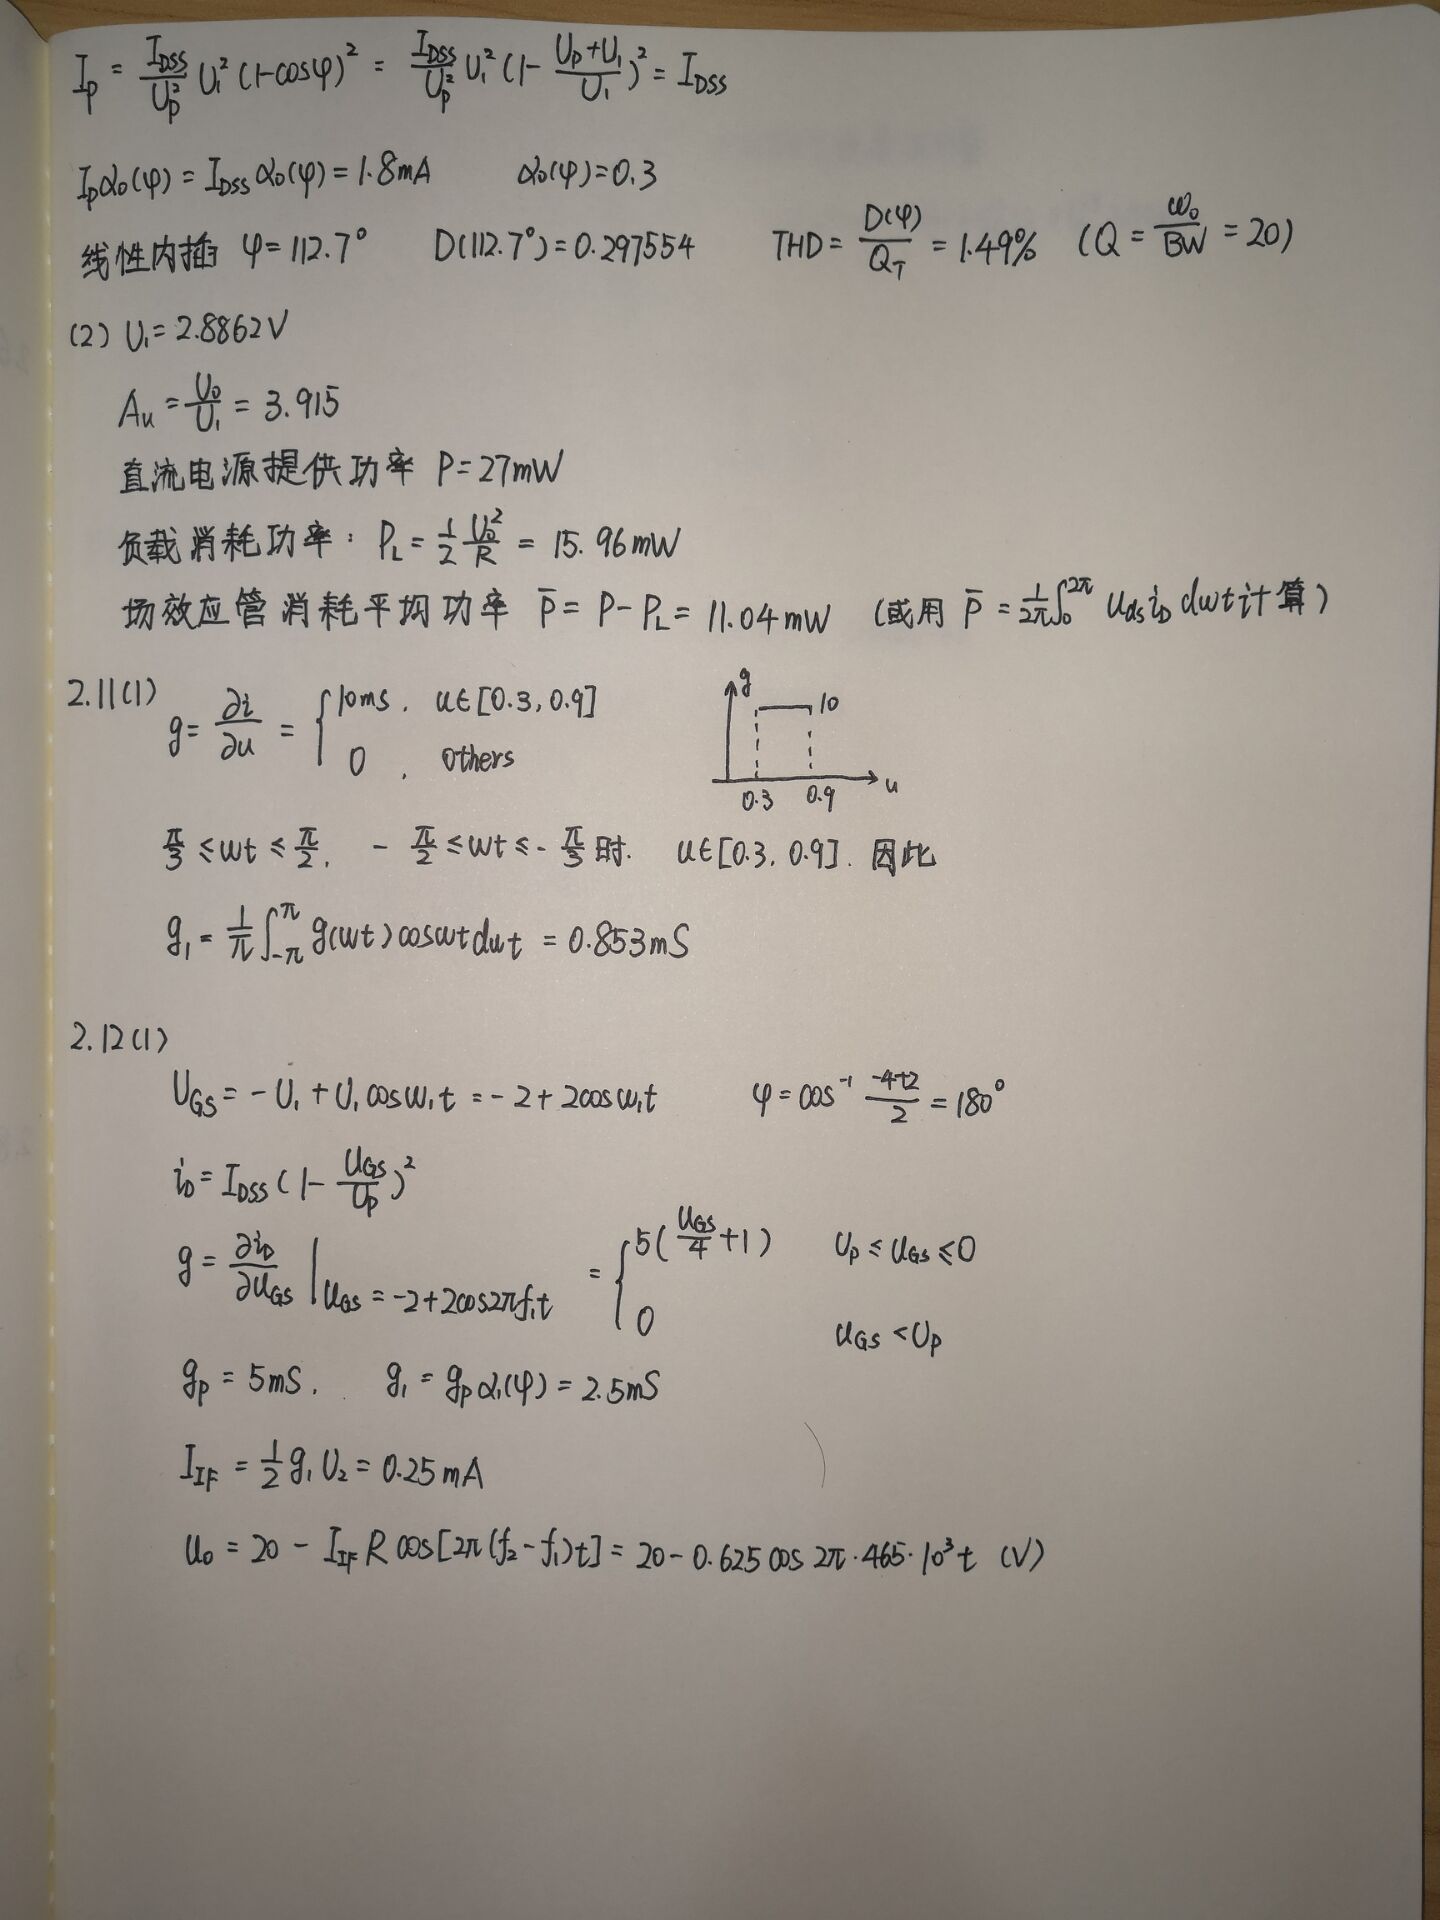 I_P = I_DSS/U_P² U₁² (1-cosφ)² = I_DSS/U_P² U₁² (1 - (U_P+U₁)/U₁)² = I_DSS
I_P α₀(φ) = I_DSS α₀(φ) = 1.8mA α₀(φ)=0.3
线性内插 φ=112.7° D(112.7°)=0.297554 THD = D(φ)/Q_T = 1.49% (Q = ω₀/BW = 20)
(2) U₁=2.8862V
A_u = U₀/U₁ = 3.915
直流电源提供功率 P=27mW
负载消耗功率: P_L = 1/2 U₀²/R = 15.96mW
场效应管消耗平均功率 P̄ = P-P_L = 11.04mW (或用 P̄ = 1/2π ∫₀^2π u_ds i_D dωt计算)
2.11(1) g = ∂i/∂u = { 10ms, u∈[0.3, 0.9]
0, others
g 10 0.3 0.9 u
π/3 ≤ωt≤ π/2, -π/2 ≤ωt≤ -π/3 时. u∈[0.3, 0.9]. 因此
g₁ = 1/π ∫_-π^π g(ωt)cosωt dωt = 0.853mS
2.12(1)
U_GS = -U₁ + U₁cosω₁t = -2+2cosω₁t φ=cos⁻¹ (-4+2)/2 = 180°
i_D = I_DSS (1 - U_GS/U_P)²
g = ∂i_D/∂u_GS |u_GS = -2+2cos2πf₁t = { 5(u_GS/4 +1) U_P ≤ u_GS ≤0
0 u_GS <U_P
g_P = 5mS, g₁ = g_P α₁(φ) = 2.5mS
I_IF = 1/2 g₁ U₂ = 0.25mA
u₀ = 20 - I_IF R cos[2π(f₂-f₁)t] = 20-0.625cos 2π·465·10³t (V)